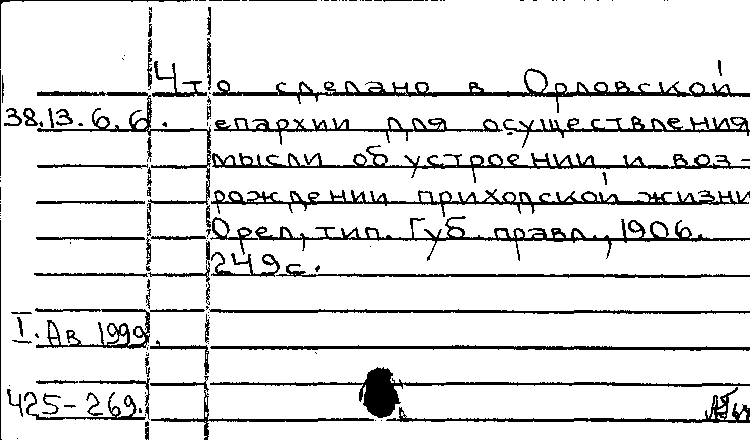 Что сделано в Орловской
38.13.6.6. епархии для осуществления
мысли об устроении и воз-
рождении приходской жизни
Орел, тип. Губ. правл., 1906.
249 с.
I. Ав 1999.
425-269.